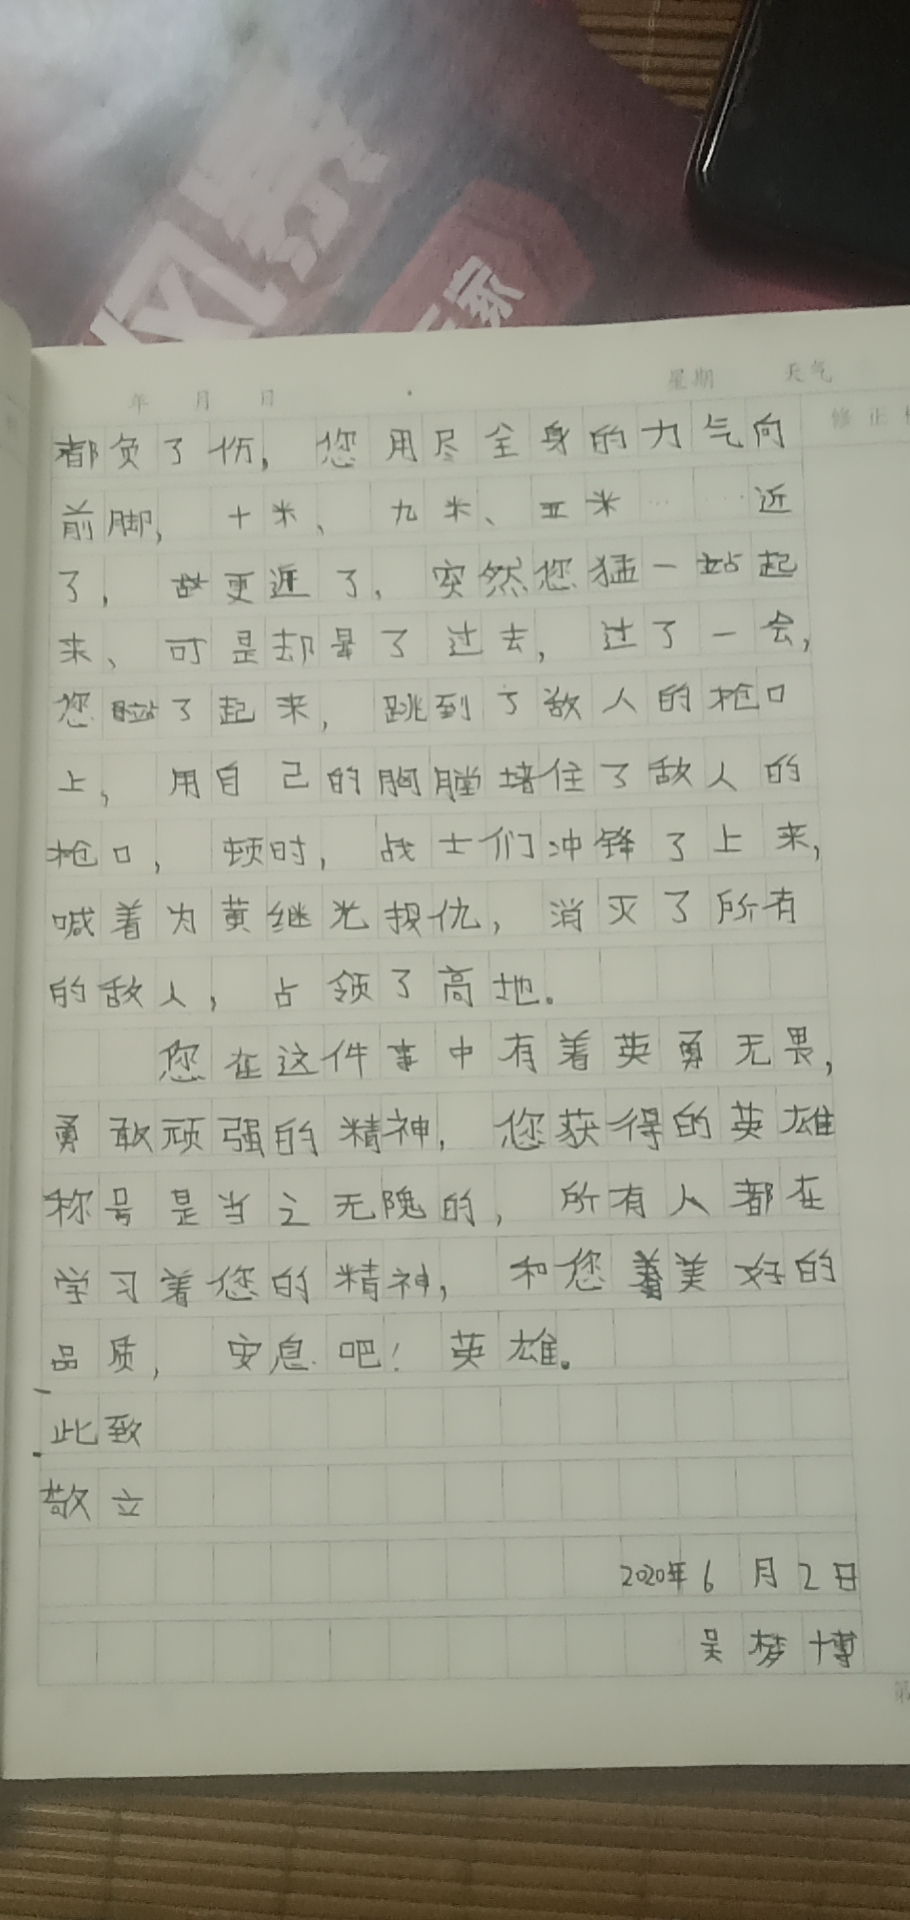 风暴
家
年 月 日 星期 天气
修正
都负了伤，您用尽全身的力气向
前脚，十米、九米、五米……近
了，更近了，突然您猛一站起
来、可是却晕了过去，过了一会，
您站了起来，跳到了敌人的枪口
上，用自己的胸膛堵住了敌人的
枪口，顿时，战士们冲锋了上来，
喊着为黄继光报仇，消灭了所有
的敌人，占领了高地。
您在这件事中有着英勇无畏，
勇敢顽强的精神，您获得的英雄
称号是当之无愧的，所有人都在
学习着您的精神，和您着美好的
品质，安息吧！英雄。
此致
敬立
2020年6月2日
吴梦博